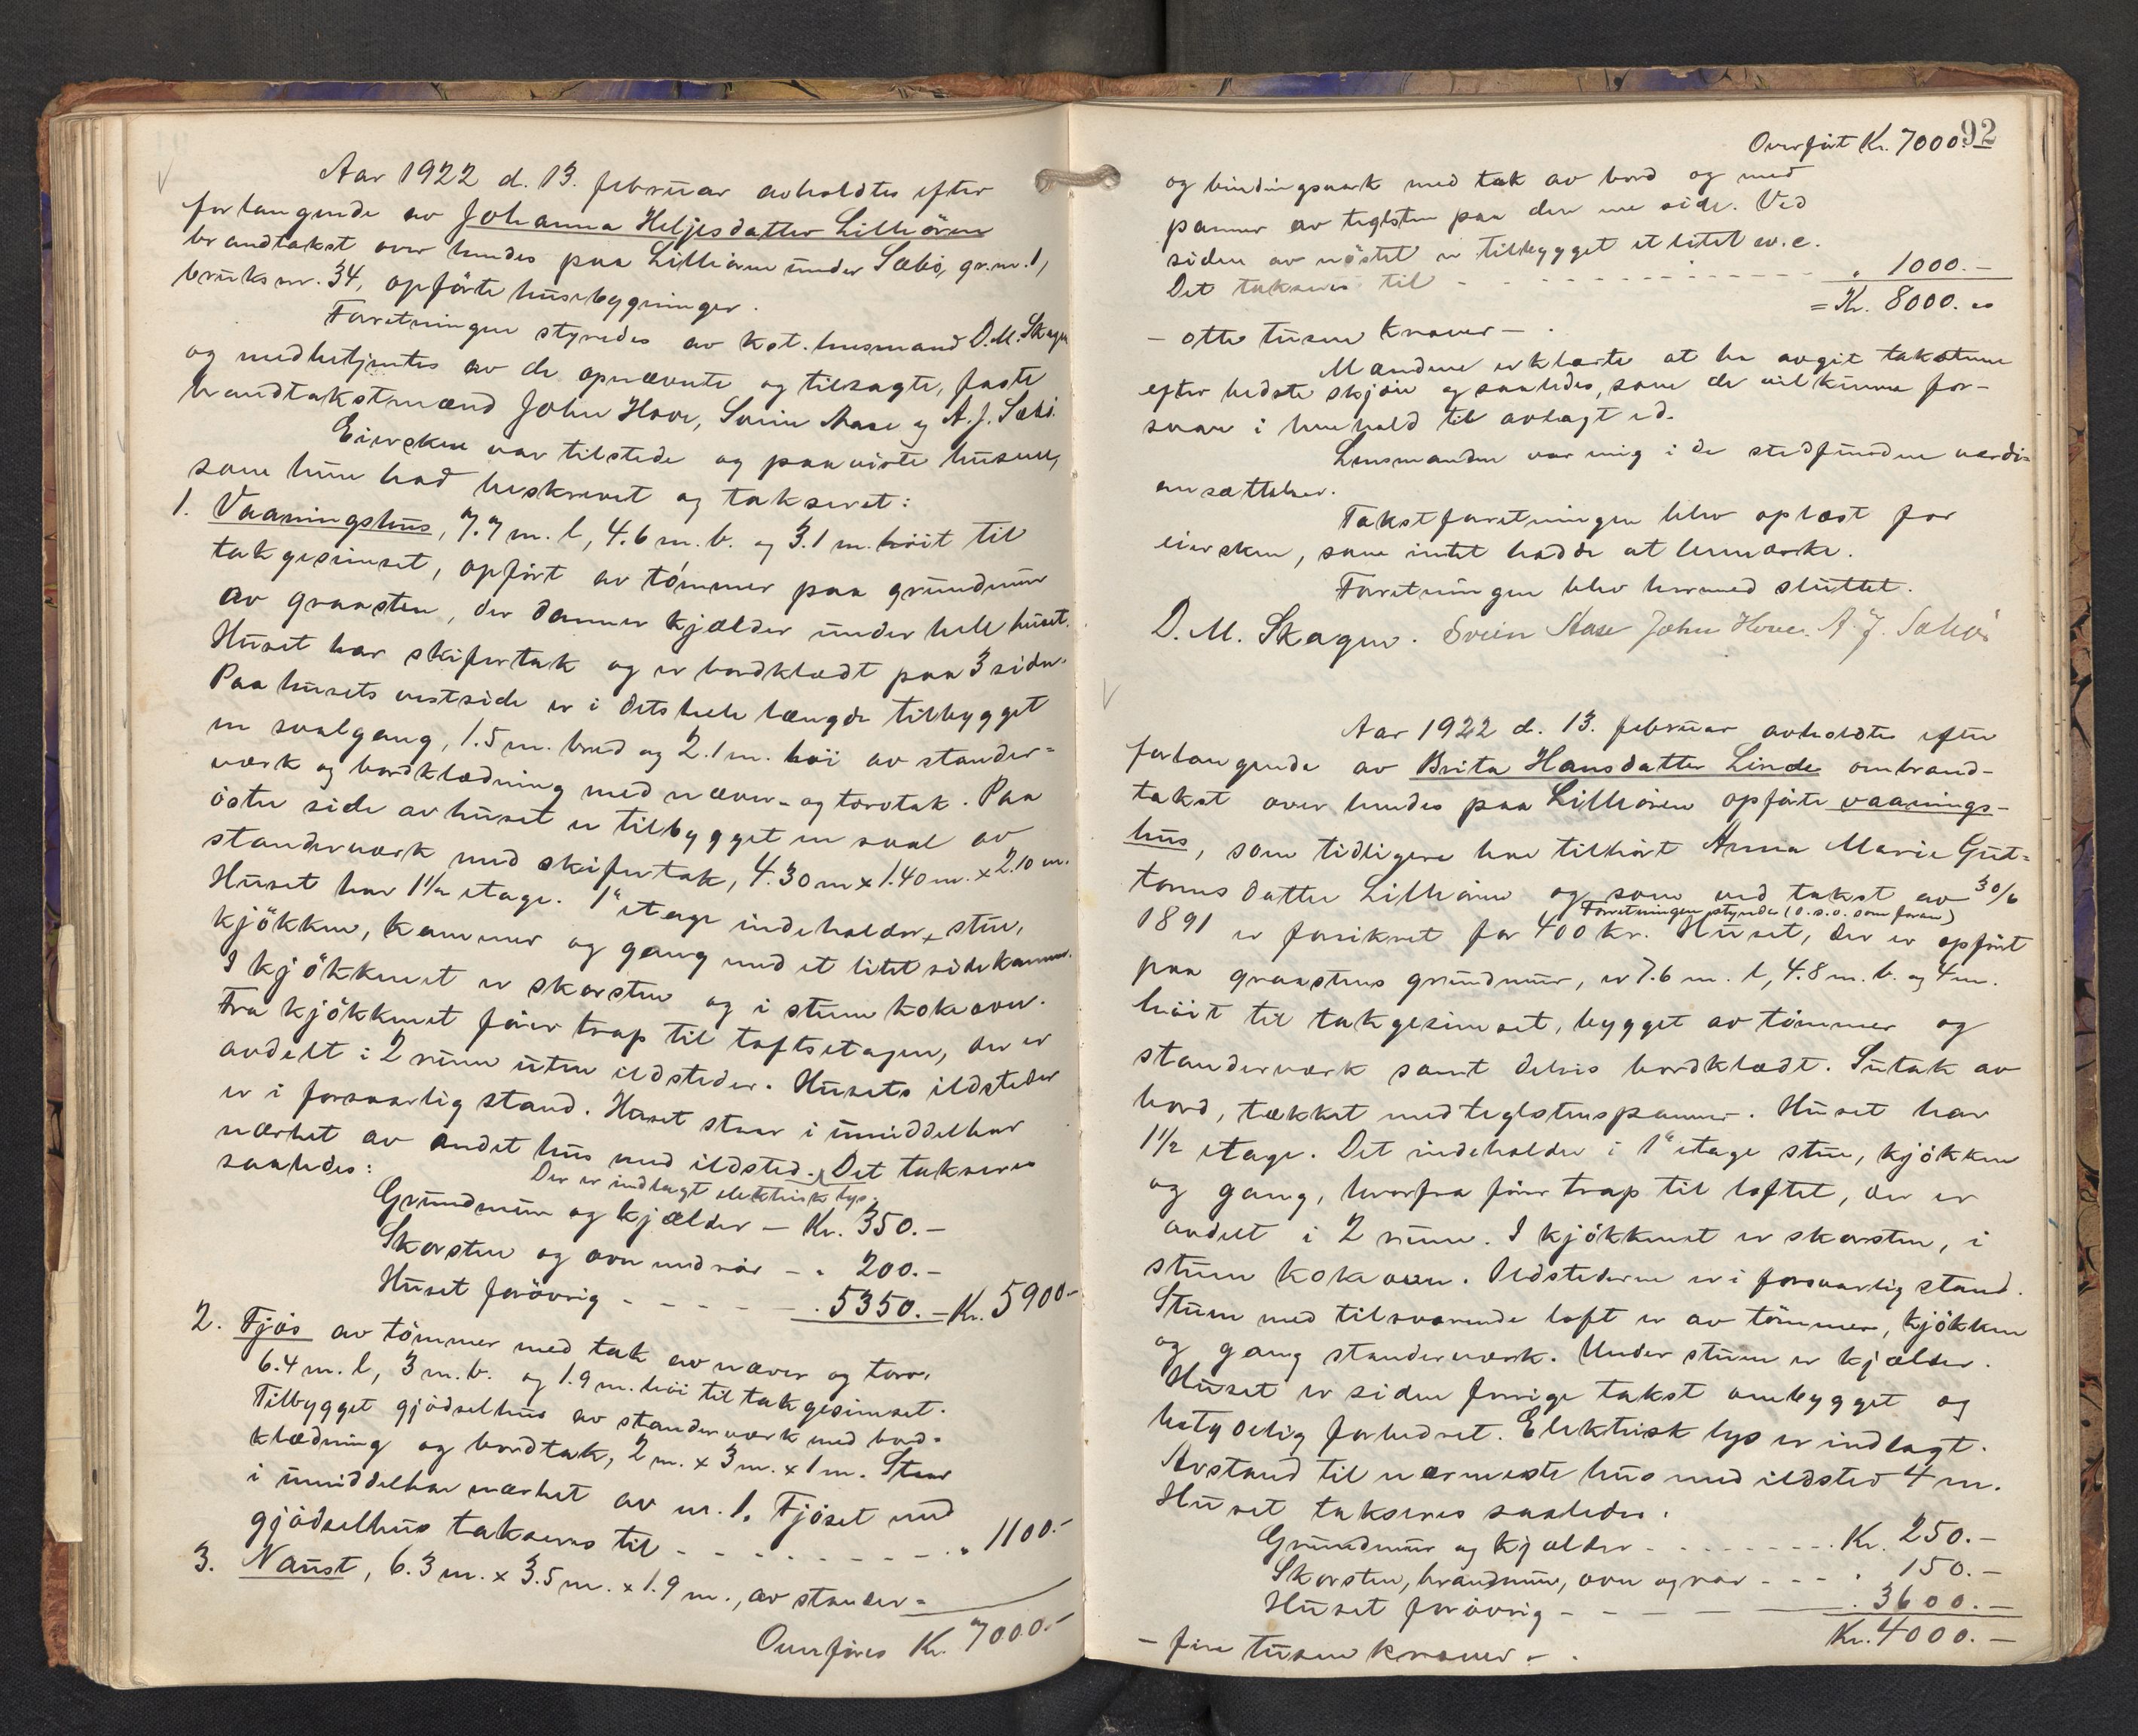 Aar 1922 d. 13. februar avholdtes efter
forlangende av Johanna Heljesdatter Lilleören
brandtakst over hendes paa Lilleören under Sæbö, gr.nr. 1,
bruks nr. 34, opförte husebygninger.
Forretningen styredes av kst. lensmand D. M. Skagen
og medbetjentes av de opnævnte og tilsagte, faste
brandtakstmænd John Hove, Svein Aase og A. J. Sæbö.
Eiersken var tilstede og paaviste husene,
som hun bad beskrevet og taksert:
1. Vaaningshus, 7.7 m. l, 4.6 m. b. og 3.1 m. höit til
takgesimset, opfört av tömmer paa grundmur
av graasten, der danner kjælder under hele huset.
Huset har skifertak og er bordklædt paa 3 sider.
Paa husets vestside er i dets hele længde tilbygget
en svalgang, 1.5 m. bred og 2.1 m. höi av stander=
værk og bordklædning med næver- og torvtak. Paa
östre side av huset er tilbygget en sval av
standerværk med skifertak, 4.30 m x 1.40 m. x 2.10 m.
Huset har 1 1/2 etage. 1ste etage indeholder stue,
kjökken, kammer og gang med et litet sidekammer.
I kjökkenet er skorsten og i stuen kokeovn.
Fra kjökkenet förer trap til loftsetagen, der er
avdelt i 2 rum uten ildsteder. Husets ildsteder
er i forsvarlig stand. Huset staar i umiddelbar
nærhet av andet hus med ildsted. Det takseres
Der er indlagt elektrisk lys.
saaledes:
Grundmur og kjælder – Kr. 350.–
Skorsten og ovn med rör – " 200.–
Huset forövrig - - - - - " 5350.– Kr. 5900.–
2. Fjös av tömmer med tak av næver og torv,
6.4 m. l, 3 m. b. og 1.9 m. höi til takgesimset.
Tilbygget gjödselhus av standerværk med bord=
klædning og bordtak, 2 m. x 3 m. x 1 m. Staar
i umiddelbar nærhet av nr. 1. Fjöset med
gjödselhus takseres til - - - - - - - - - " 1100.–
3. Naust, 6.3 m. x 3.5 m. x 1.9 m., av stander=
Overföres Kr. 7000.–
92
Overfört Kr. 7000.–
og bindingsverk med tak av bord og med
panner av teglsten paa den ene side. Ved
siden av nöstet er tilbygget et litet w.c.
Det takseres til - - - - - - - - - - - " 1000.–
= Kr. 8000.
– otte tusen kroner – .
Mændene erklærte at ha avgit taksterne
efter bedste skjön og saaledes, som de vil kunne for-
svare i henhold til avlagt ed.
Lensmanden var enig i de stedfundne værdi-
ansættelser.
Takstforretningen blev oplæst for
eiersken, som intet hadde at bemærke.
Forretningen blev hermed sluttet.
D. M. Skagen. Svein Aase John Hove. A. J. Sæbö
Aar 1922 d. 13. februar avholdtes efter
forlangende av Brita Hansdatter Linde ombrand-
takst over hendes paa Lilleören opförte vaanings-
hus, som tidligere har tilhört Anna Marie Gut=
torms datter Lilleören og som ved takst av 30/6
Forretningen styredes (o.s.v. som foran)
1891 er forsikret for 400 kr. Huset, der er opfört
paa graastens grundmur, er 7.6 m. l, 4.8 m. b. og 4 m.
höit til takgesimset, bygget av tömmer og
standerværk samt delvis bordklædt. Sutak av
bord, tækket med teglstenspanner. Huset har
1 1/2 etage. Det indeholder i 1ste etage stue, kjökken
og gang, hvorfra förer trap til loftet, der er
avdelt i 2 rum. I kjökkenet er skorsten, i
stuen kokeovn. Ildstederne er i forsvarlig stand.
Stuen med tilsvarende loft er av tömmer, kjökken
og gang standerværk. Under stuen er kjælder.
Huset er siden forrige takst ombygget og
betydelig forbedret. Elektrisk lys er indlagt.
Avstand til nærmeste hus med ildsted 4 m.
Huset takseres saaledes:
Grundmur og kjælder - - - - - - - Kr. 250.–
Skorsten, brandmur, ovn og rör - - - " 150.–
Huset forövrig - - - - - " 3600.–
Kr. 4000.–
– fire tusen kroner – .